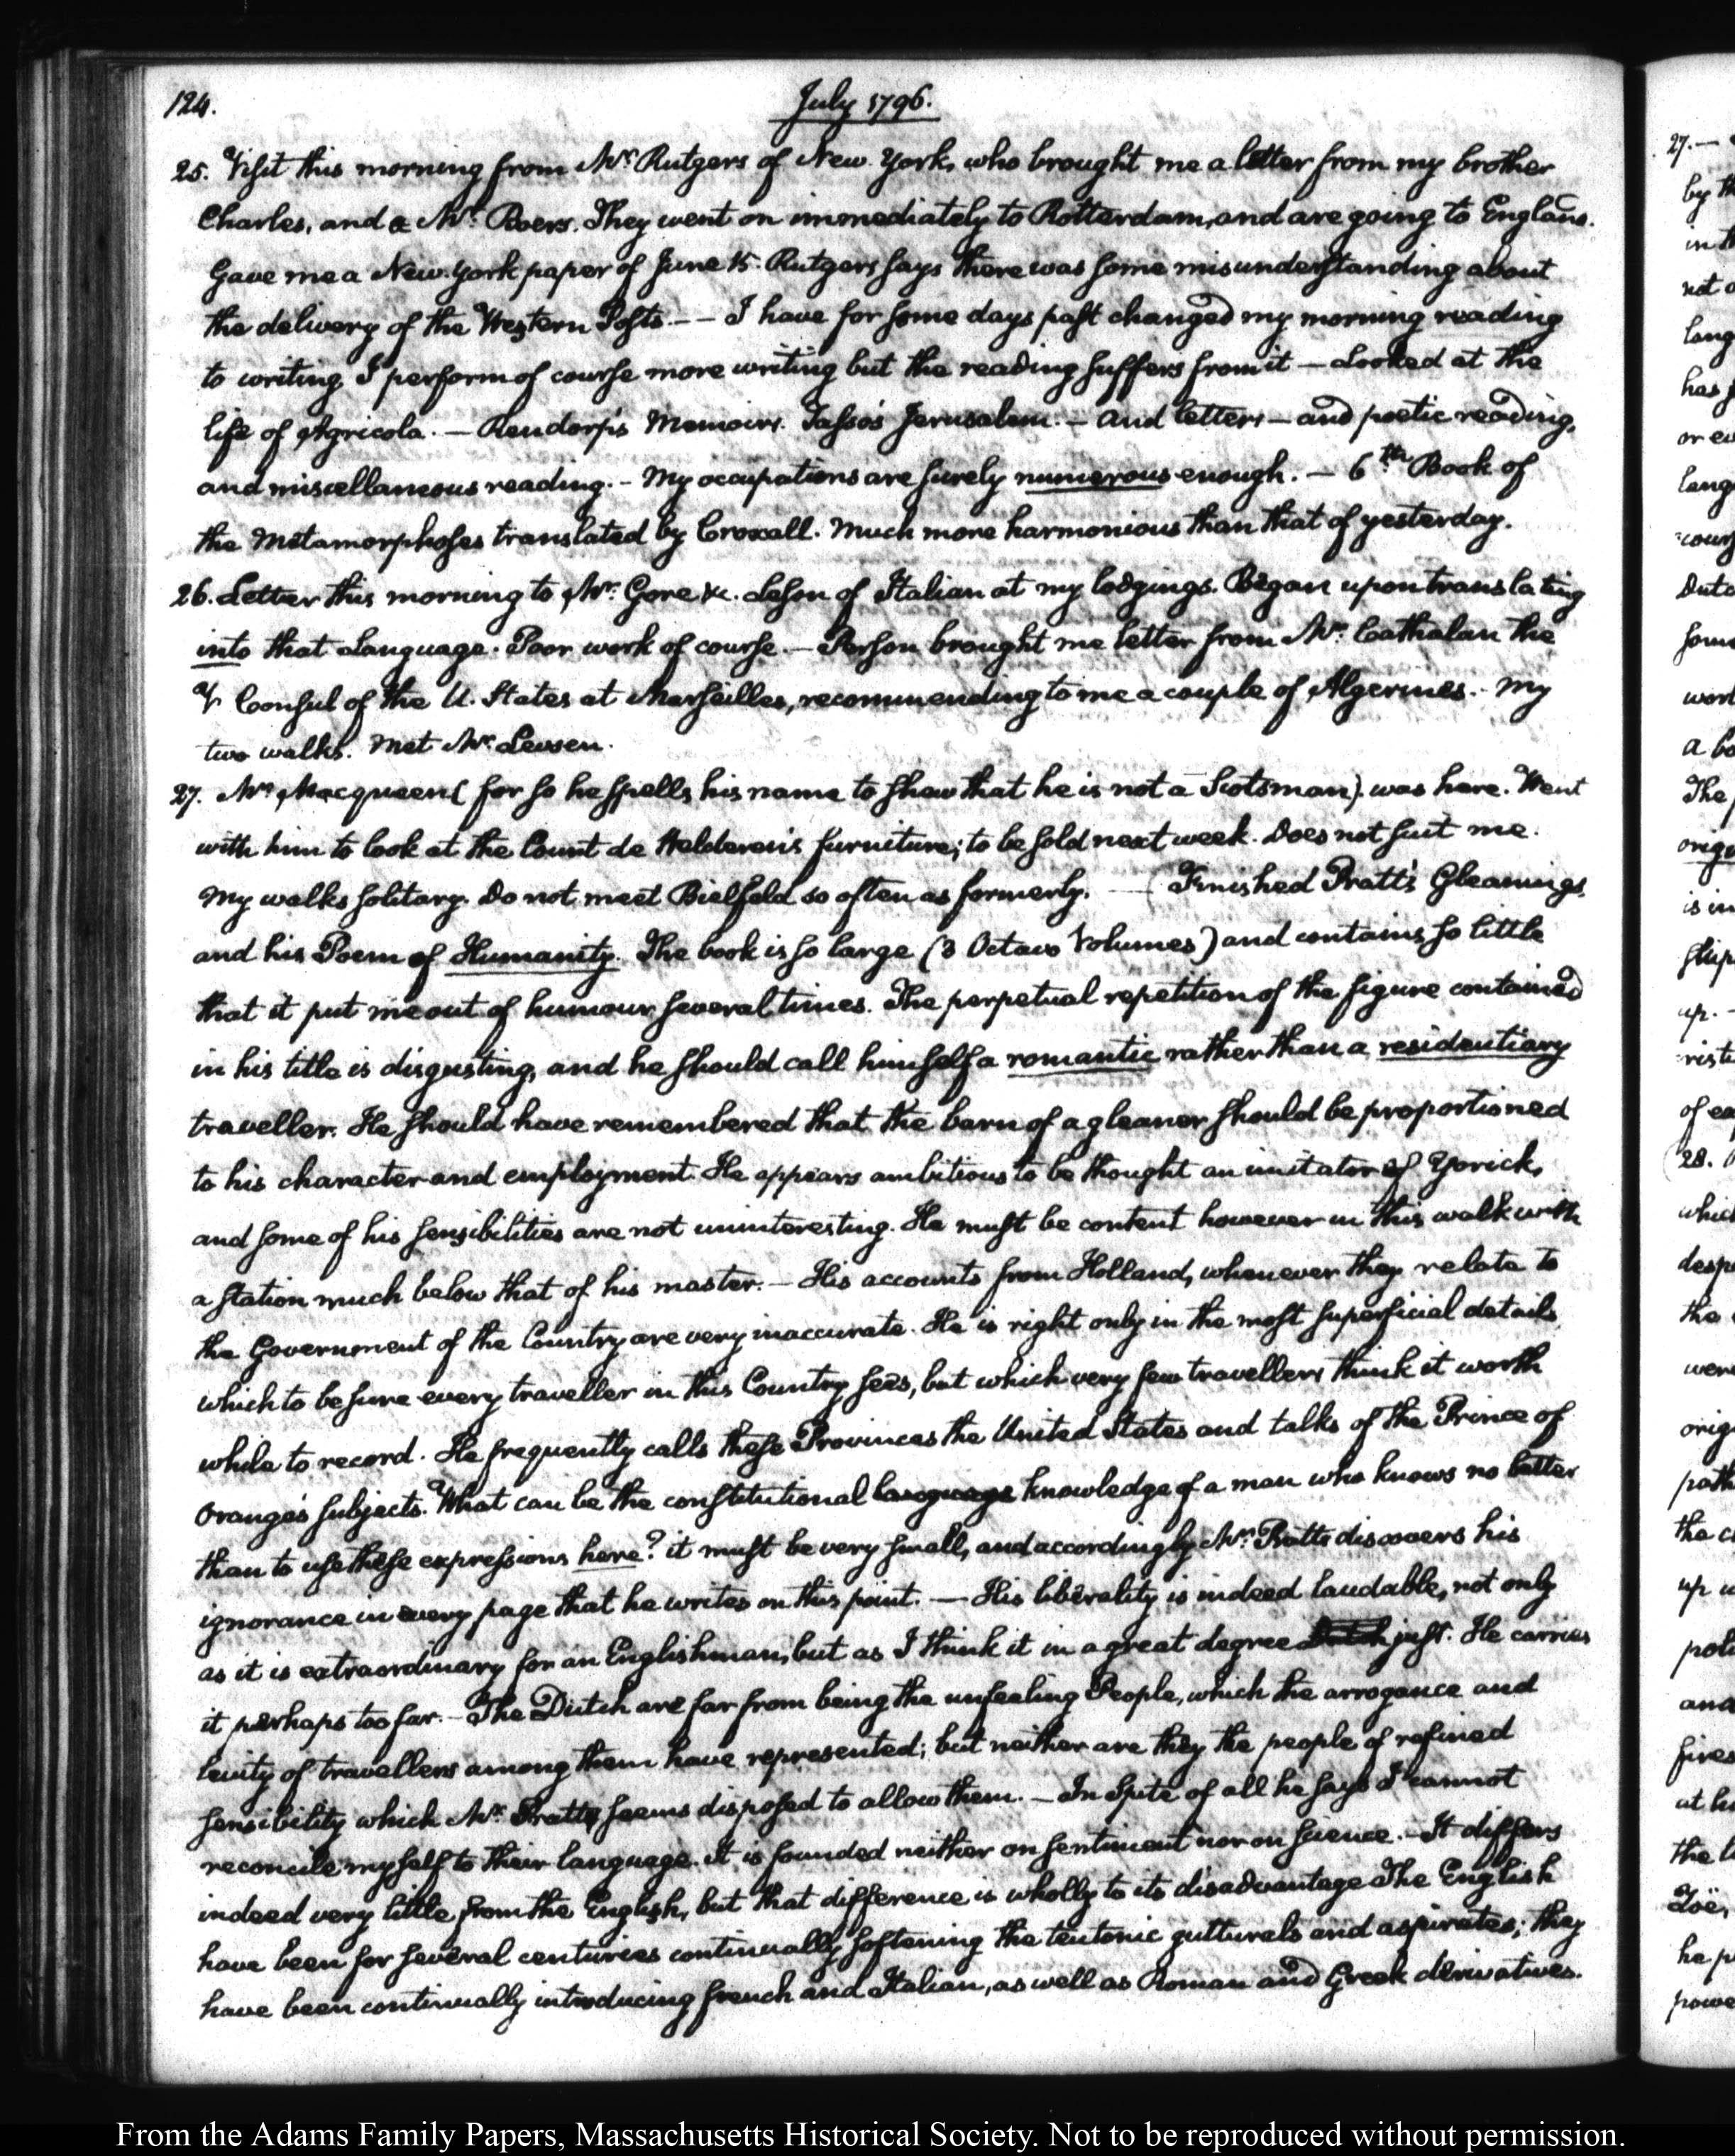 124.
July 1796.
25. Visit this morning from Mr. Rutgers of New York, who brought me a letter from my brother
Charles, and a Mr. Roers. They went on immediately to Rotterdam, and are going to England.
Gave me a New York paper of June 15. Rutgers says there was some misunderstanding about
the delivery of the Western Posts. — — I have for some days past changed my morning reading
to writing I perform of course more writing but the reading suffers from it — Looked at the
life of Agricola. — Rendorp's Memoirs. Tasso's Jerusalem. — and letters — and poetic reading,
and miscellaneous reading. - My occupations are surely numerous enough. — 6th Book of
the Metamorphoses translated by Croxall. Much more harmonious than that of yesterday.
26. Letter this morning to Mr. Gore &c. Lesson of Italian at my lodgings. Began upon translating
into that Language. Poor work of course. — Person brought me letter from Mr. Cathalan the
V Consul of the U. States at Marseilles, recommending to me a couple of Algerines. - My
two walks. Met Mr. Levsen.
27. Mr. Macqueen (for so he spells his name to shew that he is not a Scotsman). was here. Went
with him to look at the Count de Welderen's furniture; to be sold next week. Does not suit me.
My walks solitary. Do not meet Bielfeld so often as formerly. — Finished Pratt's Gleanings,
and his Poem of Humanity. The book is so large (3 Octavo Volumes) and contains so little
that it put me out of humour several times. The perpetual repetition of the figure contained
in his title is disgusting, and he should call himself a romantic rather than a residentiary
traveller. He should have remembered that the barn of a gleaner should be proportioned
to his character and employment. He appears ambitious to be thought an imitator of Yorick,
and some of his sensibilities are not uninteresting. He must be content however in this walk with
a station much below that of his master. — His accounts from Holland, whenever they relate to
the Government of the Country are very inaccurate. He is right only in the most superficial details
which to be sure every traveller in this Country sees, but which very few travellers think it worth
while to record. He frequently calls these Provinces the United States and talks of the Prince of
Orange's subjects. What can be the constitutional language knowledge of a man who knows no better
than to use these expressions here? it must be very small, and accordingly Mr. Pratt discovers his
ignorance in every page that he writes on this point. — His liberality is indeed laudable, not only
as it is extraordinary for an Englishman, but as I think it in a great degree just. He carries
it perhaps too far. - The Dutch are far from being the unfeeling People, which the arrogance and
levity of travellers among them have represented; but neither are they the people of refined
sensibility which Mr. Pratt seems disposed to allow them. — In Spite of all he says I cannot
reconcile myself to their language. It is founded neither on sentiment nor on science. — It differs
indeed very little from the English, but that difference is wholly to its disadvantage The English
have been for several centuries continually softening the teutonic gutturals and aspirates; they
have been continually introducing french and Italian, as well as Roman and Greek derivatives.
27. —
by th
in
not
lang
has
or
lang
cour
Dutc
some
work
a
The
orig
is in
up. -
of
28.
whic
desp
the
were
orig
path
the
up
pol
and
fire
at
the
he
powe
From the Adams Family Papers, Massachusetts Historical Society. Not to be reproduced without permission.